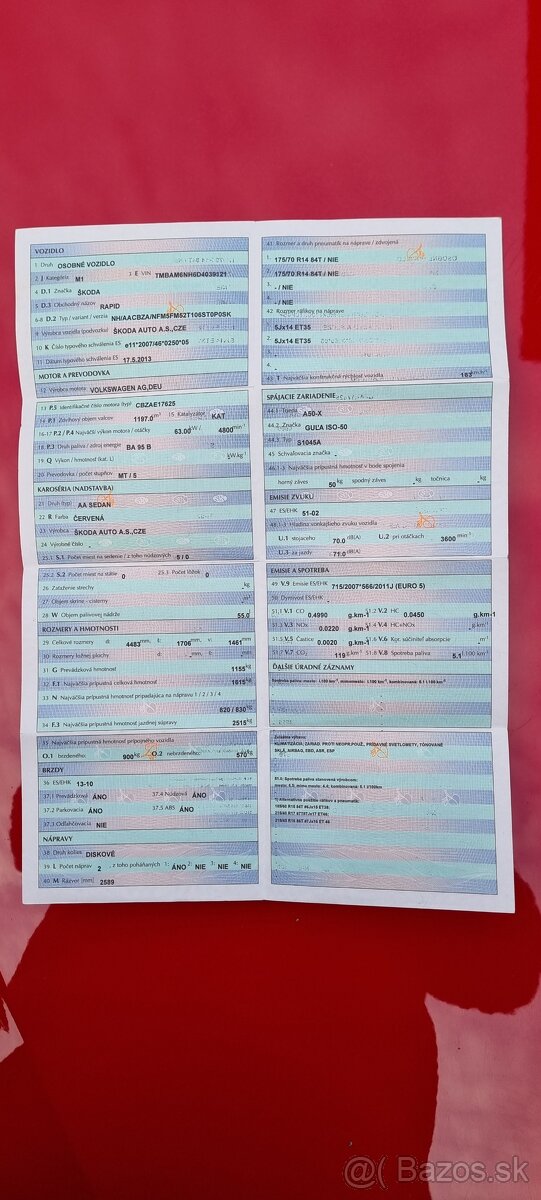 VOZIDLO
1 Druh OSOBNÉ VOZIDLO
2 J Kategória M1 3 E VIN TMBAM6NH6D4039121
4 D.1 Značka ŠKODA
5 D.3 Obchodný názov RAPID
6-8 D.2 Typ / variant / verzia NH/AACBZA/NFM5FM52T106ST0P0SK
9 Výrobca vozidla (podvozku) ŠKODA AUTO A.S.,CZE
10 K Číslo typového schválenia ES e11*2007/46*0250*05
11 Dátum typového schválenia ES 17.5.2013
MOTOR A PREVODOVKA
12 Výrobca motora VOLKSWAGEN AG,DEU
13 P.5 Identifikačné číslo motora (typ) CBZAE17625
14 P.1 Zdvihový objem valcov 1197.0 cm³ 15 Katalyzátor KAT
16-17 P.2 / P.4 Najväčší výkon motora / otáčky 63.00 kW / 4800 min⁻¹
18 P.3 Druh paliva / zdroj energie BA 95 B
19 Q Výkon / hmotnosť (kat. L) kW.kg⁻¹
20 Prevodovka / počet stupňov MT / 5
KAROSÉRIA (NADSTAVBA)
21 Druh (typ) AA SEDAN
22 R Farba ČERVENÁ
23 Výrobca ŠKODA AUTO A.S.,CZE
24 Výrobné číslo
25.1 S.1 Počet miest na sedenie / z toho núdzových 5 / 0
25.2 S.2 Počet miest na státie 0 25.3 Počet lôžok 0
26 Zaťaženie strechy kg
27 Objem skrine - cisterny m³
28 W Objem palivovej nádrže 55.0 l
ROZMERY A HMOTNOSTI
29 Celkové rozmery d: 4483 mm, š: 1706 mm, v: 1461 mm
30 Rozmery ložnej plochy d: mm, š: mm
31 G Prevádzková hmotnosť 1155 kg
32 F.1 Najväčšia prípustná celková hmotnosť 1615 kg
33 N Najväčšia prípustná hmotnosť pripadajúca na nápravu 1 / 2 / 3 / 4
820 / 830 kg
34 F.3 Najväčšia prípustná hmotnosť jazdnej súpravy 2515 kg
35 Najväčšia prípustná hmotnosť prípojného vozidla
O.1 brzdeného: 900 kg O.2 nebrzdeného: 570 kg
BRZDY
36 ES/EHK 13-10
37.1 Prevádzková ÁNO 37.4 Núdzová ÁNO
37.2 Parkovacia ÁNO 37.5 ABS ÁNO
37.3 Odľahčovacia NIE
NÁPRAVY
38 Druh kolies DISKOVÉ
39 L Počet náprav 2 , z toho poháňaných 1: ÁNO 2: NIE 3: NIE 4: NIE
40 M Rázvor [mm] 2589
41 Rozmer a druh pneumatík na náprave / zdvojená
1. 175/70 R14 84T / NIE
2. 175/70 R14 84T / NIE
3. - / NIE
4. - / NIE
42 Rozmer ráfikov na náprave
1. 5Jx14 ET35
2. 5Jx14 ET35
3.
4.
43 T Najväčšia konštrukčná rýchlosť vozidla 183 km.h⁻¹
SPÁJACIE ZARIADENIE
44.1 Trieda A50-X
44.2 Značka GUĽA ISO-50
44.3 Typ S1045A
45 Schvaľovacia značka
46.1-3 Najväčšia prípustná hmotnosť v bode spojenia
horný záves 50 kg spodný záves - kg točnica - kg
EMISIE ZVUKU
47 ES/EHK 51-02
48.1-3 Hladina vonkajšieho zvuku vozidla
U.1 stojaceho 70.0 dB(A) U.2 pri otáčkach 3600 min⁻¹
U.3 za jazdy 71.0 dB(A)
EMISIE A SPOTREBA
49 V.9 Emisie ES/EHK 715/2007*566/2011J (EURO 5)
50 Dymivosť ES/EHK
51.1 V.1 CO 0.4990 g.km-1 51.2 V.2 HC 0.0450 g.km-1
51.3 V.3 NOx 0.0220 g.km-1 51.4 V.4 HC+NOx g.km-1
51.5 V.5 Častice 0.0020 g.km-1 51.6 V.6 Kor. súčiniteľ absorpcie m⁻¹
51.7 V.7 CO₂ 119 g.km-1 51.8 V.8 Spotreba paliva 5.1 l.100 km⁻¹
ĎALŠIE ÚRADNÉ ZÁZNAMY
Zvláštna výbava:
KLIMATIZÁCIA, ZARIAD. PROTI NEOPR.POUŽ, PRÍDAVNÉ SVETLOMETY, TÓNOVANÉ
SKLÁ, AIRBAG, EBD, ASR, ESP
51.8: Spotreba paliva stanovená výrobcom:
mesto, 6.5, mimo mesto: 4.4, kombinovaná: 5.1 l/100km
1) Alternatívne použitie ráfikov a pneumatík:
@( Bazos.sk